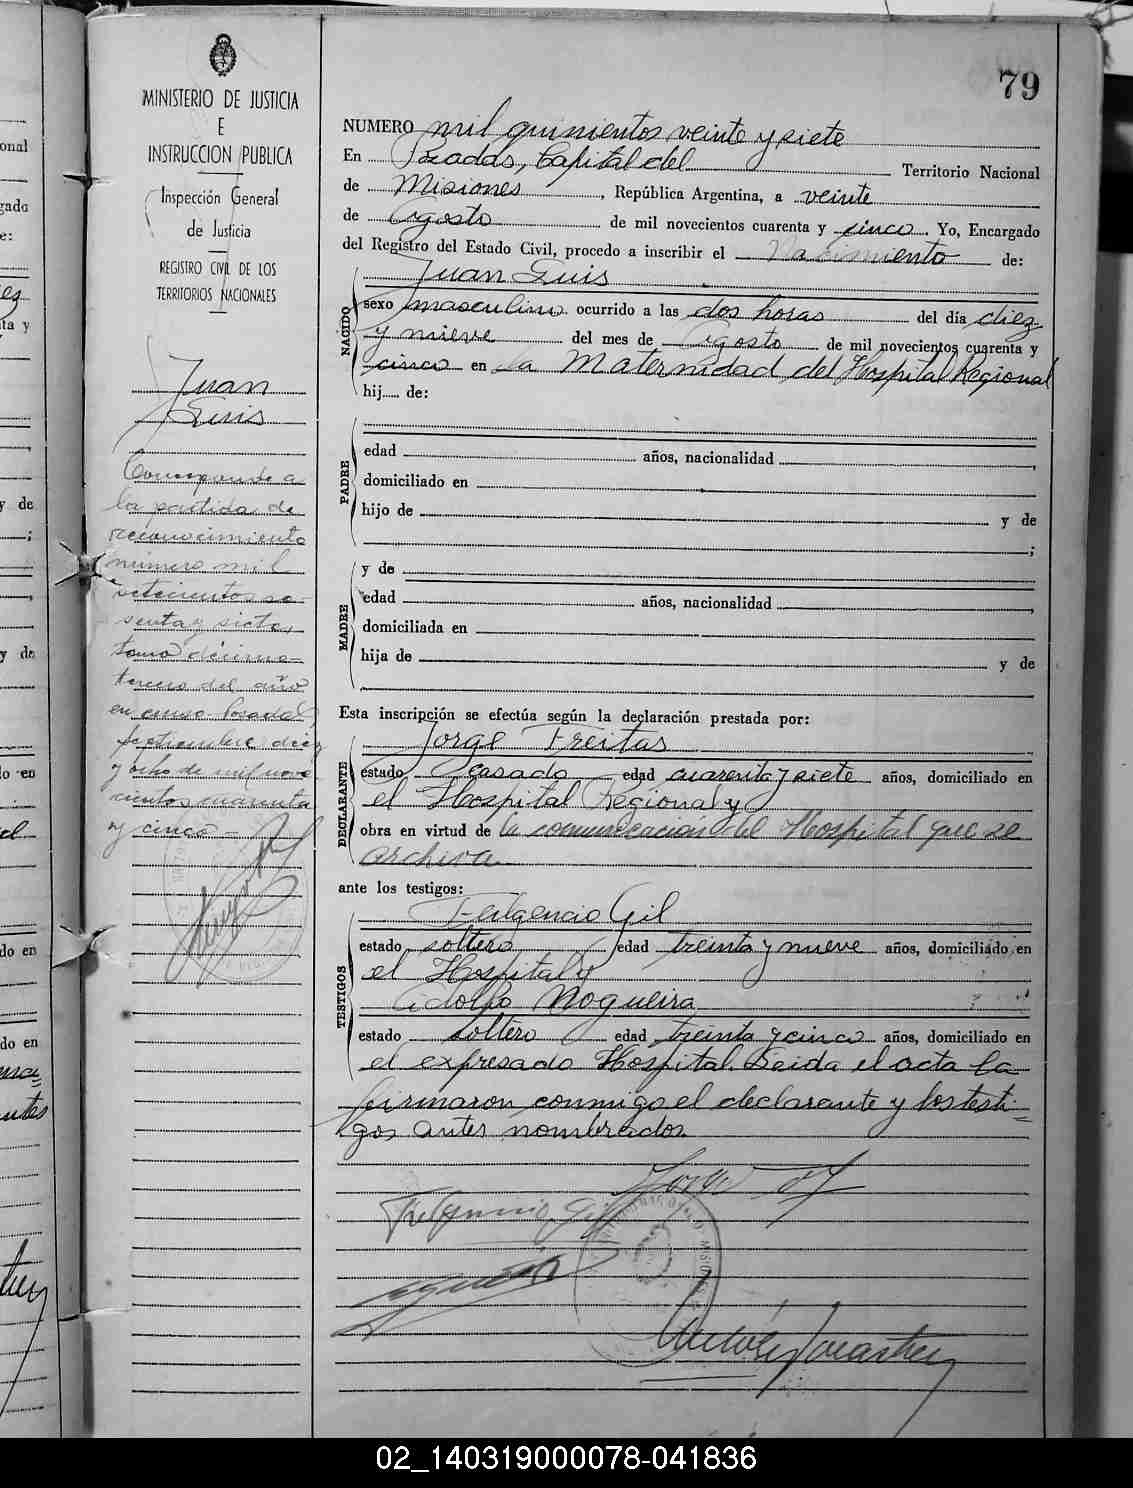 79
MINISTERIO DE JUSTICIA
E
INSTRUCCION PUBLICA
Inspección General
de Justicia
REGISTRO CIVIL DE LOS
TERRITORIOS NACIONALES
Juan
Luis
Corresponde a
la partida de
reconocimiento
número mil
setecientos se-
senta y siete,
tomo décimo-
tercero del año
en curso. Posadas,
septiembre diez
y ocho de mil nove-
cientos cuarenta
y cinco-
NUMERO mil quinientos veinte y siete
En Posadas, Capital del Territorio Nacional
de Misiones, República Argentina, a veinte
de Agosto de mil novecientos cuarenta y cinco. Yo, Encargado
del Registro del Estado Civil, procedo a inscribir el Nacimiento de:
Juan Luis
NACIDO
sexo masculino ocurrido a las dos horas del día diez
y nueve del mes de Agosto de mil novecientos cuarenta y
cinco en la Maternidad del Hospital Regional
hij..... de:
PADRE
edad años, nacionalidad
domiciliado en
hijo de y de
;
MADRE
y de
edad años, nacionalidad
domiciliada en
hija de y de
Esta inscripción se efectúa según la declaración prestada por:
DECLARANTE
Jorge Freitas
estado casado edad cuarenta y siete años, domiciliado en
el Hospital Regional y
obra en virtud de la comunicación del Hospital que se
archiva
ante los testigos:
TESTIGOS
Fulgencio Gil
estado soltero edad treinta y nueve años, domiciliado en
el Hospital y
Adolfo Nogueira
estado soltero edad treinta y cinco años, domiciliado en
el expresado Hospital. Leida el acta la
firmaron conmigo el declarante y los testi-
gos antes nombrados.
02_140319000078-041836